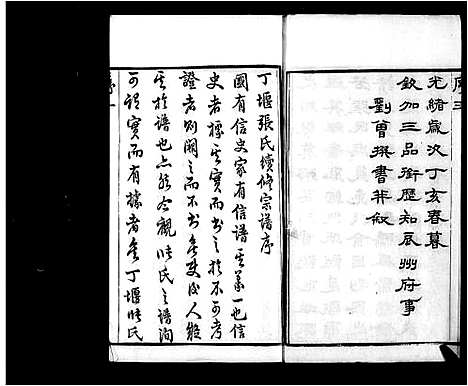 序三
光緒歲次丁亥春暮
欽加三品銜歷知辰州府事
劉曾撰書并敘
丁堰張氏續修宗譜序
國有信史家有信譜其義一也信
史者標其實而於不可考
證者則闕之而不書無更後人難
其於譜也亦然合觀張氏之譜洵
可謂實而有據者矣丁堰張氏
序一